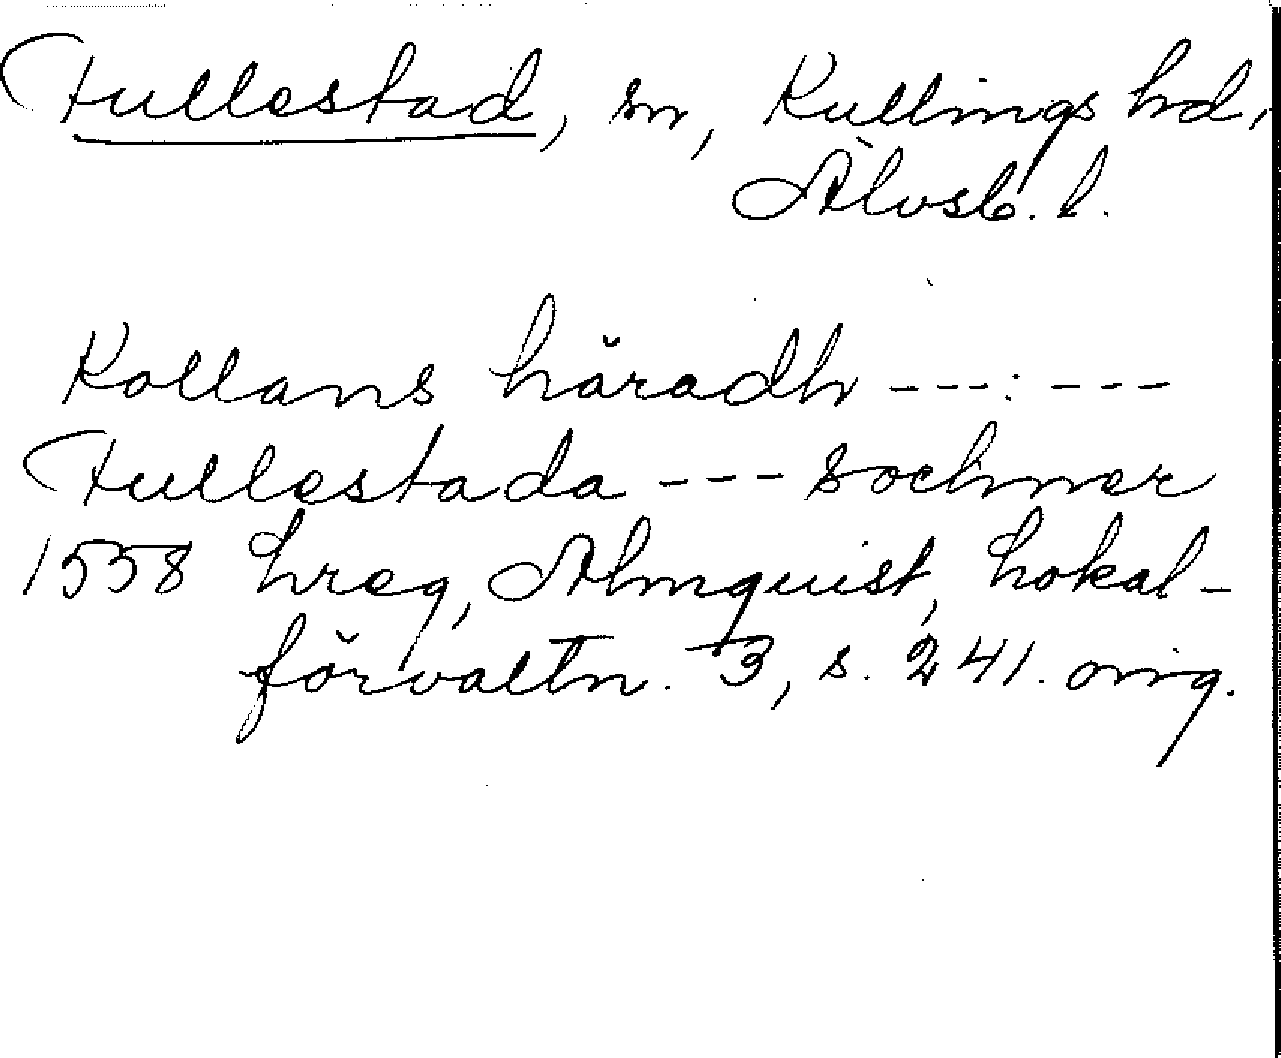 Fullestad, sn, Kullings hd,
Älvsb. l.
Kollans häradh ---:---
Fullestada --- sochner
1558 hreg, Almquist, Lokal-
förvaltn. 3, s. 241. orig.